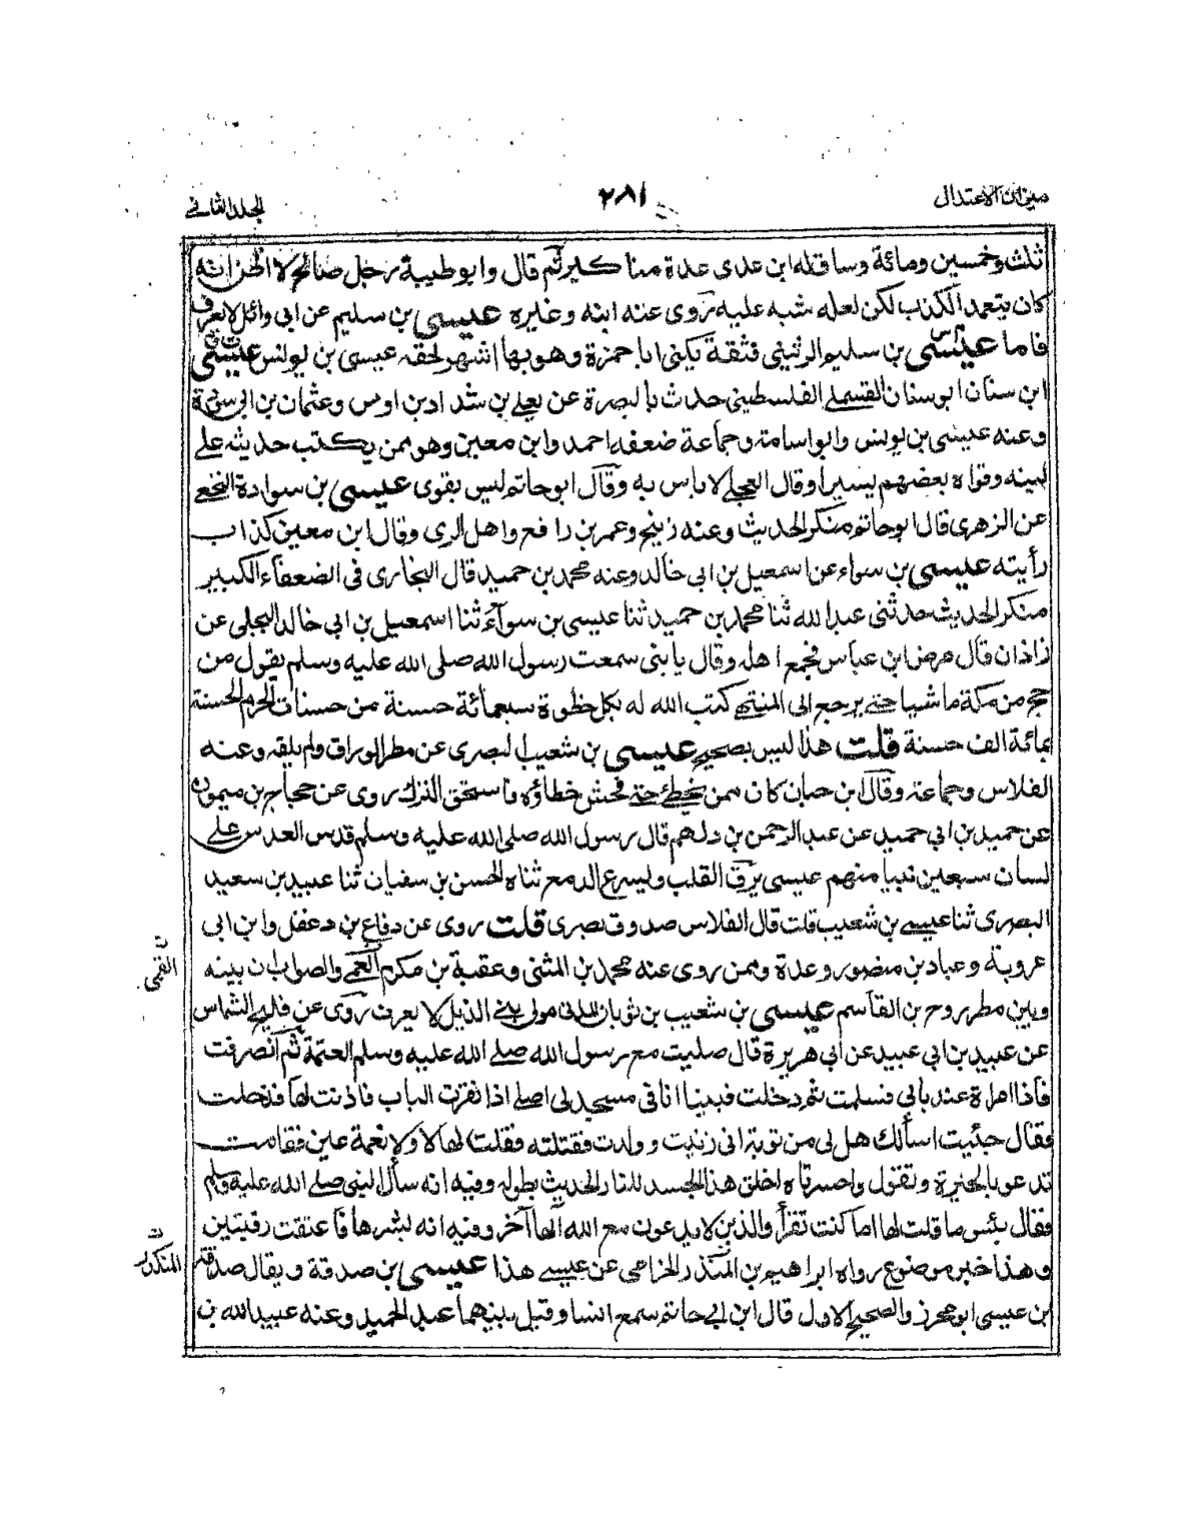 ميزان الاعتدال
٢٨١
الجلد الثاني
ثلث وخمسين ومائة وساق له ابن عدى عدة مناكير ثم قال وابو طيبة رجل صالح لا اظن انه
كان يتعمد الكذب لكن لعله شبه عليه روى عنه ابنه وغيره عيسى بن سليم عن ابى وائل لا يعرف
فاما عيسى بن سليم الرستنى فثقة يكنى ابا حمزة وهو بها اشهر لحقه عيسى بن يونس عيسى
ابن سنان ابو سنان القسملے الفلسطينى حدث بالبصرة عن يعلے بن شداد بن اوس وعثمان بن ابى سودة
وعنه عيسى بن يونس وابو اسامة وجماعة ضعفه احمد وابن معين وهو ممن يكتب حديثه علے
لينه وقواه بعضهم يسيرا وقال العجلے لا باس به وقال ابو حاتم ليس بقوى عيسى بن سوادة النخعے
عن الزهرى قال ابو حاتم منكر الحديث وعنه زنيج وعمر بن رافع واهل الرى وقال ابن معين كذاب
رأيته عيسى بن سواء عن اسمعيل بن ابى خالد وعنه محمد بن حميد قال البخارى فى الضعفاء الكبير
منكر الحديث حدثنى عبد الله ثنا محمد بن حميد ثنا عيسى بن سواء ثنا اسمعيل بن ابى خالد البجلى عن
زاذان قال مرض ابن عباس فجمع اهله وقال يا بنى سمعت رسول الله صلى الله عليه وسلم يقول من
حج من مكة ماشيا حتے يرجع الى المنتهے كتب الله له بكل خطوة سبعمائة حسنة من حسنات الحرم الحسنة
بمائة الف حسنة قلت هذا ليس بصحيح عيسى بن شعيب البصرى عن مطر الوراق ولم يلقه وعنه
الفلاس وجماعة وقال ابن حبان كان ممن يخطئ حتے فحش خطاؤه فاستحق الترك روى عن حجاج بن ميمون
عن حميد بن ابى حميد عن عبد الرحمن بن دلهم قال رسول الله صلى الله عليه وسلم قدس العدس علے
لسان سبعين نبيا منهم عيسى يرق القلب ويسرع الدمع ثناه الحسن بن سفيان ثنا عبيد بن سعيد
البصرى ثنا عيسے بن شعيب قلت قال الفلاس صدوق بصرى قلت روى عن دفاع بن دغفل وابن ابى
عروبة وعباد بن منصور وعدة وممن روى عنه محمد بن المثنى وعقبة بن مكرم العمے والصواب ان بينه
وبين مطر روح بن القاسم عيسى بن شعيب بن ثوبان المدنى مولى بنے الذيل لا يعرف روى عن فليح الشماس
عن عبيد بن ابى عبيد عن ابى هريرة قال صليت مع رسول الله صلے الله عليه وسلم العتمة ثم انصرفت
فاذا امراة عند بابى فسلمت ثم دخلت فبينا انا فى مسجدى اصلے اذا نقرت الباب فاذنت لها فدخلت
فقال جئيت اسألك هل لى من توبة انى زنيت وولدت فقتلته فقلت لها لا ولا نعمة عين فقامت
تدعو بالحيرة وتقول واحسرتاه اخلق هذا الجسد للنار الحديث بطوله وفيه انه سأل النبى صلے الله عليه وسلم
فقال بئس ما قلت لها اما كنت تقرأ والذين لا يدعون مع الله الها آخر وفيه انه بشرها فاعتقت رقبتين
وهذا خبر موضوع رواه ابراهيم بن المنذر الحزامى عن عيسے هذا عيسى بن صدقة ويقال صدقة
بن عيسى ابو محرز والصحيح الاول قال ابن ابى حاتم سمع انسا وقيل بينهما عبد الحميد وعنه عبيد الله بن
القمى
المنكدر